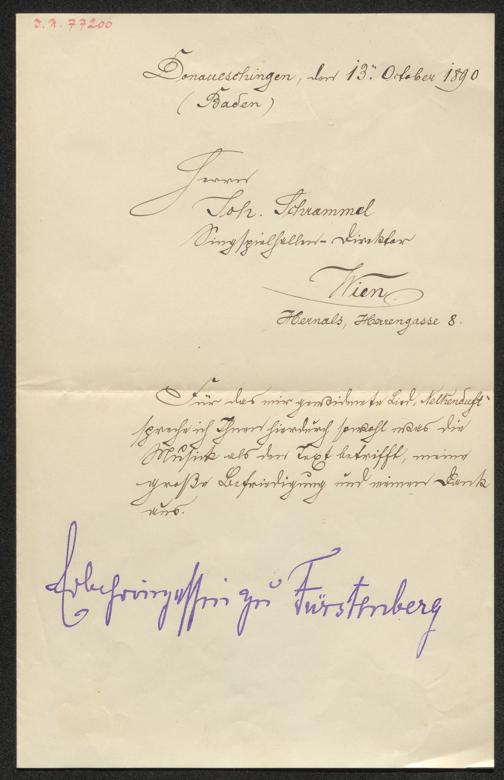 J. N. 77200
Donaueschingen, den 13. October 1890
(Baden)
Herrn
Joh. Schrammel
Singspielhallen-Direktor
Wien.
Hernals, Herrengasse 8.
Für das mir gewidmete Lied „Nelkenduft“
spreche ich Ihnen hierdurch sowohl was die
Musick als den Text betrifft, meine
große Befriedigung und meinen Dank
aus.
Erbprinzessin zu Fürstenberg